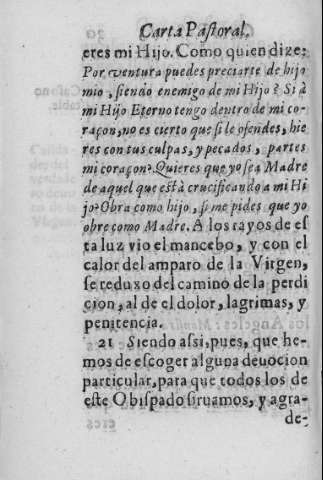 Carta Pastoral,
eres mi Hijo. Como quien dize:
Por ventura puedes preciarte de hijo
mio, siendo enemigo de mi Hijo? Si à
mi Hijo Eterno tengo dentro de mi co-
raçon, no es cierto que si le ofendes, hie
res con tus culpas, y pecados, partes
mi coraçon? Quieres que yo sea Madre
de aquel que està crucificando a mi Hi
jo? Obra como hijo, si me pides que yo
obre como Madre. A los rayos de es
ta luz vio el mancebo, y con el
calor del amparo de la Virgen,
se reduxo del camino de la perdi
cion, al de el dolor, lagrimas, y
penitencia.
21 Siendo assi, pues, que he-
mos de escoger alguna devocion
particular, para que todos los de
este Obispado siruamos, y agra-
de-